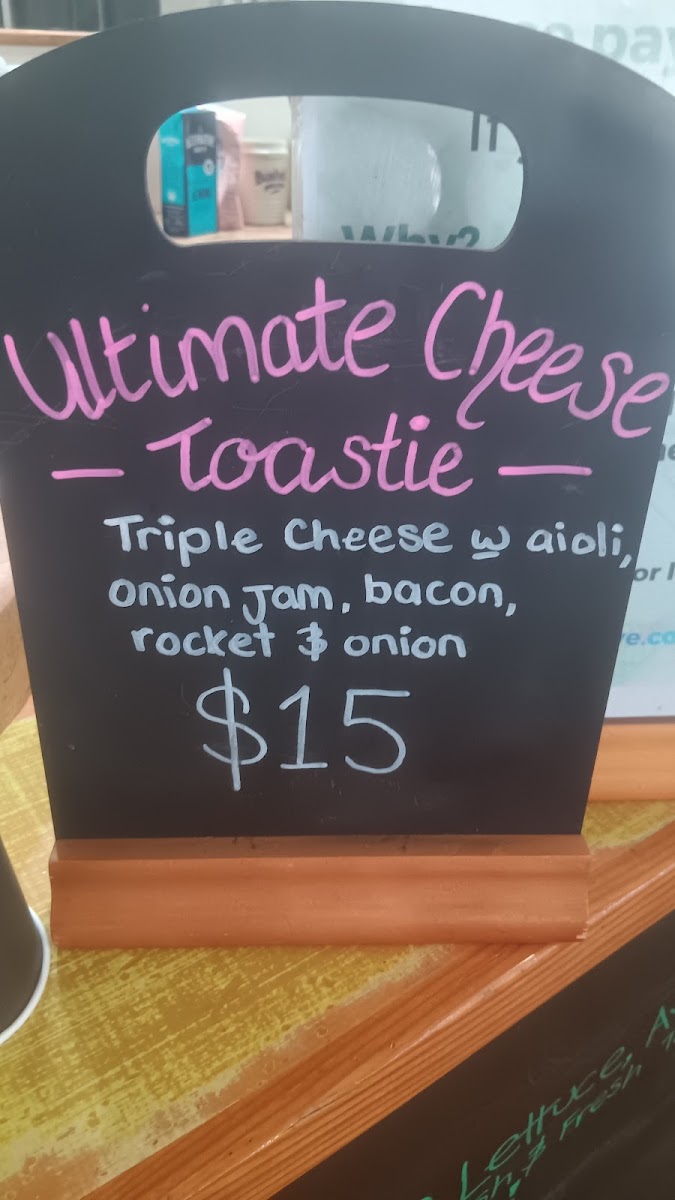 pay
If
Why?
Ultimate Cheese
— Toastie —
Triple Cheese w aioli,
onion jam, bacon,
rocket & onion
$15
or
Lettuce,
Fresh